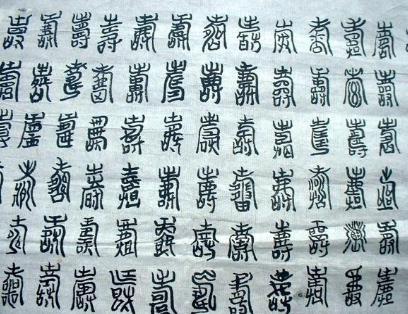 壽壽壽壽壽壽壽壽壽壽壽壽
壽壽壽壽壽壽壽壽壽壽壽壽
壽壽壽壽壽壽壽壽壽壽壽壽
壽壽壽壽壽壽壽壽壽壽壽
壽壽壽壽壽壽壽壽壽壽壽
壽壽壽壽壽壽壽壽壽壽壽